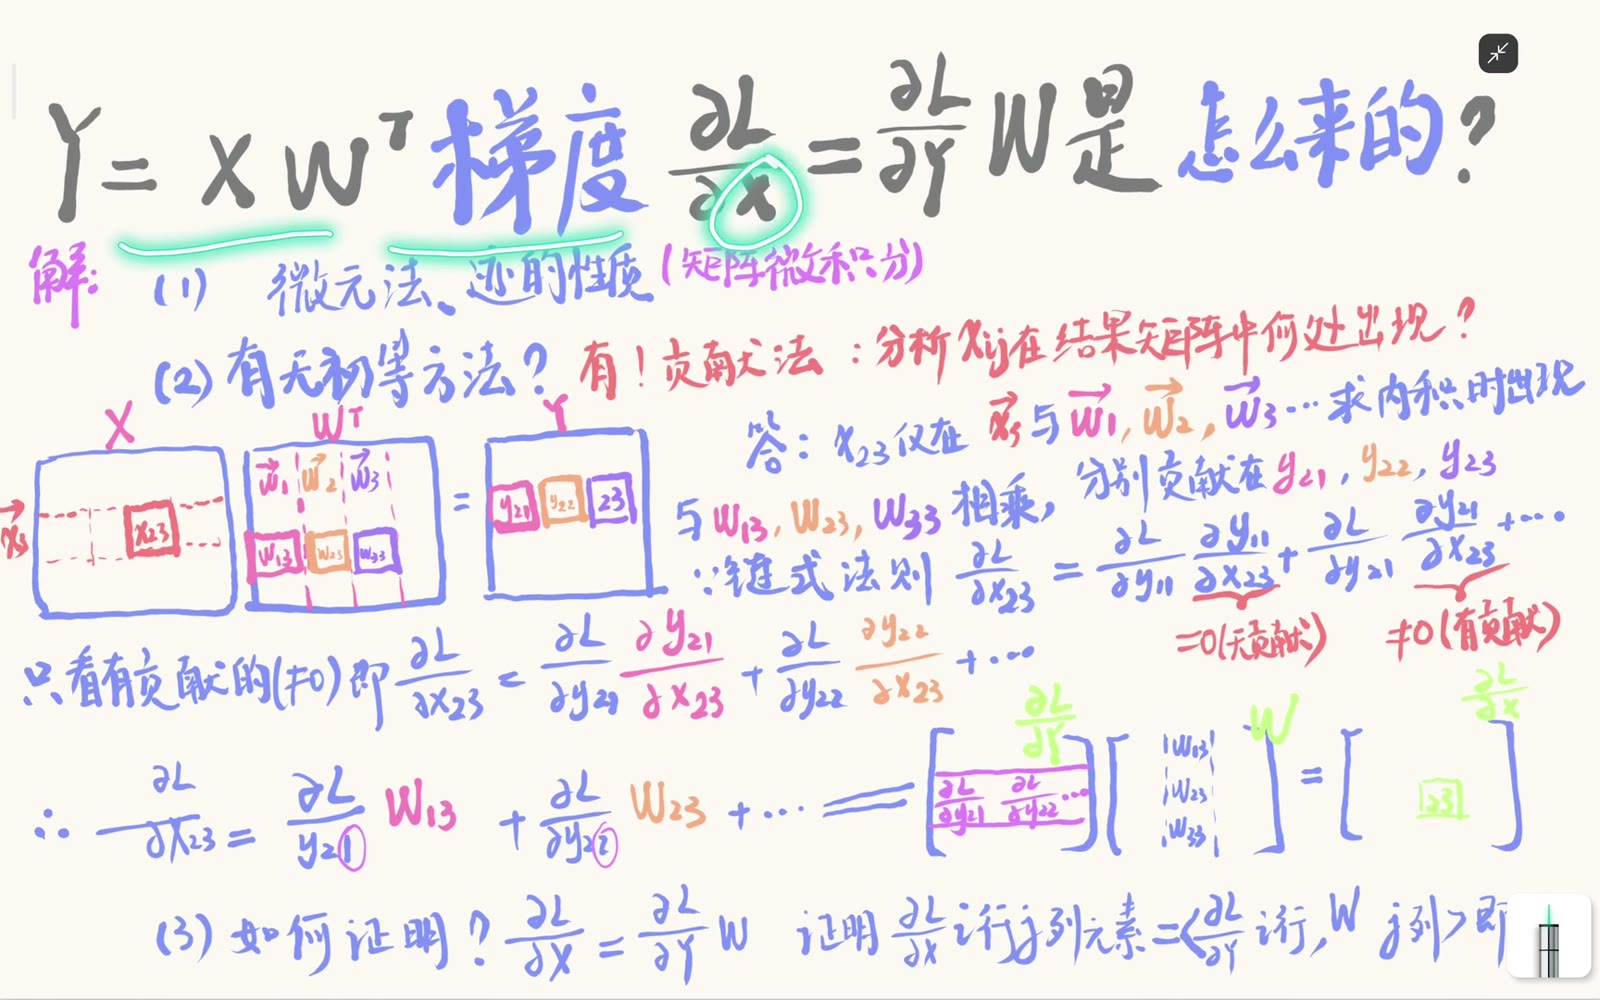 Y = XWᵀ 梯度 ∂L/∂X = ∂L/∂Y W 是 怎么来的?
解: (1) 微元法、迹的性质 (矩阵微积分)
(2) 有无初等方法? 有! 贡献法: 分析 xij 在结果矩阵中何处出现?
X Wᵀ Y
x₂₃ w⃗₁ w⃗₂ w⃗₃ w₁₃ w₂₃ w₃₃ = y₂₁ y₂₂ 23
答: x₂₃ 仅在 x⃗ 与 w⃗₁, w⃗₂, w⃗₃ … 求内积时出现
与 w₁₃, w₂₃, w₃₃ 相乘, 分别贡献在 y₂₁, y₂₂, y₂₃
∵链式法则 ∂L/∂x₂₃ = ∂L/∂y₁₁ ∂y₁₁/∂x₂₃ + ∂L/∂y₂₁ ∂y₂₁/∂x₂₃ + …
=0(无贡献) ≠0(有贡献)
只看有贡献的(≠0) 即 ∂L/∂x₂₃ = ∂L/∂y₂₁ ∂y₂₁/∂x₂₃ + ∂L/∂y₂₂ ∂y₂₂/∂x₂₃ + …
∂L/∂Y W ∂L/∂X
∴ ∂L/∂x₂₃ = ∂L/y₂₁ w₁₃ + ∂L/∂y₂₂ w₂₃ + … = [∂L/∂y₂₁ ∂L/∂y₂₂ …] [w₁₃ w₂₃ w₃₃] = [23]
(3) 如何证明? ∂L/∂X = ∂L/∂Y W 证明 ∂L/∂X i行j列元素 = <∂L/∂Y i行, W j列> 即